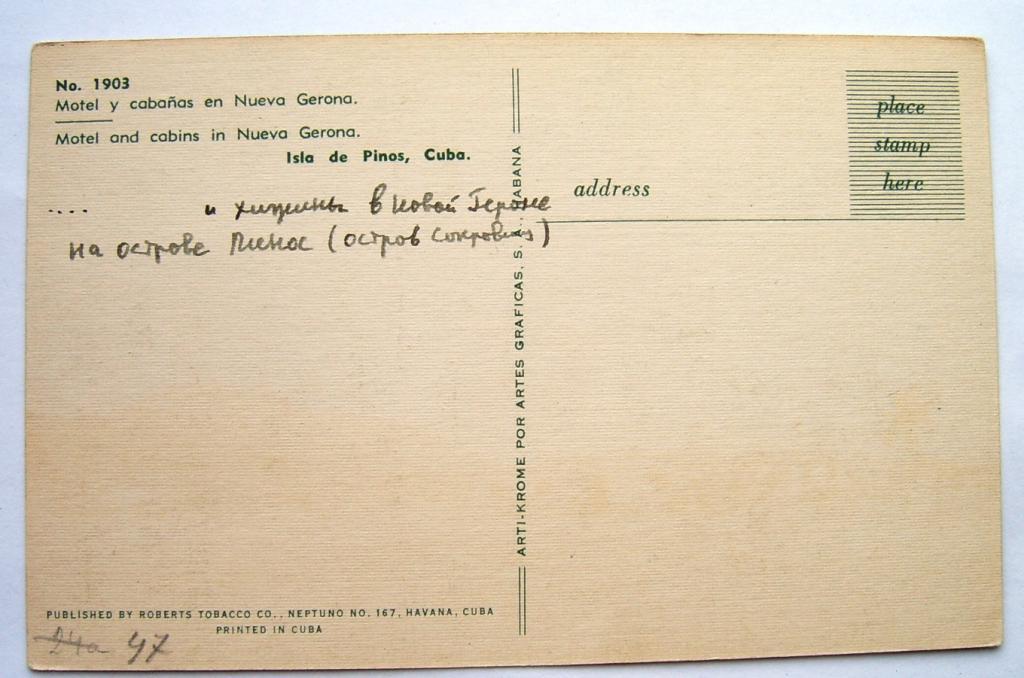 No. 1903
Motel y cabañas en Nueva Gerona.
Motel and cabins in Nueva Gerona.
Isla de Pinos, Cuba.
.... и хижины в Новой Героне
на острове Пинос (остров сокровищ)
PUBLISHED BY ROBERTS TOBACCO CO., NEPTUNO NO. 167, HAVANA, CUBA
PRINTED IN CUBA
24a 47
ARTI-KROME POR ARTES GRAFICAS, S. A. HABANA
address
place
stamp
here